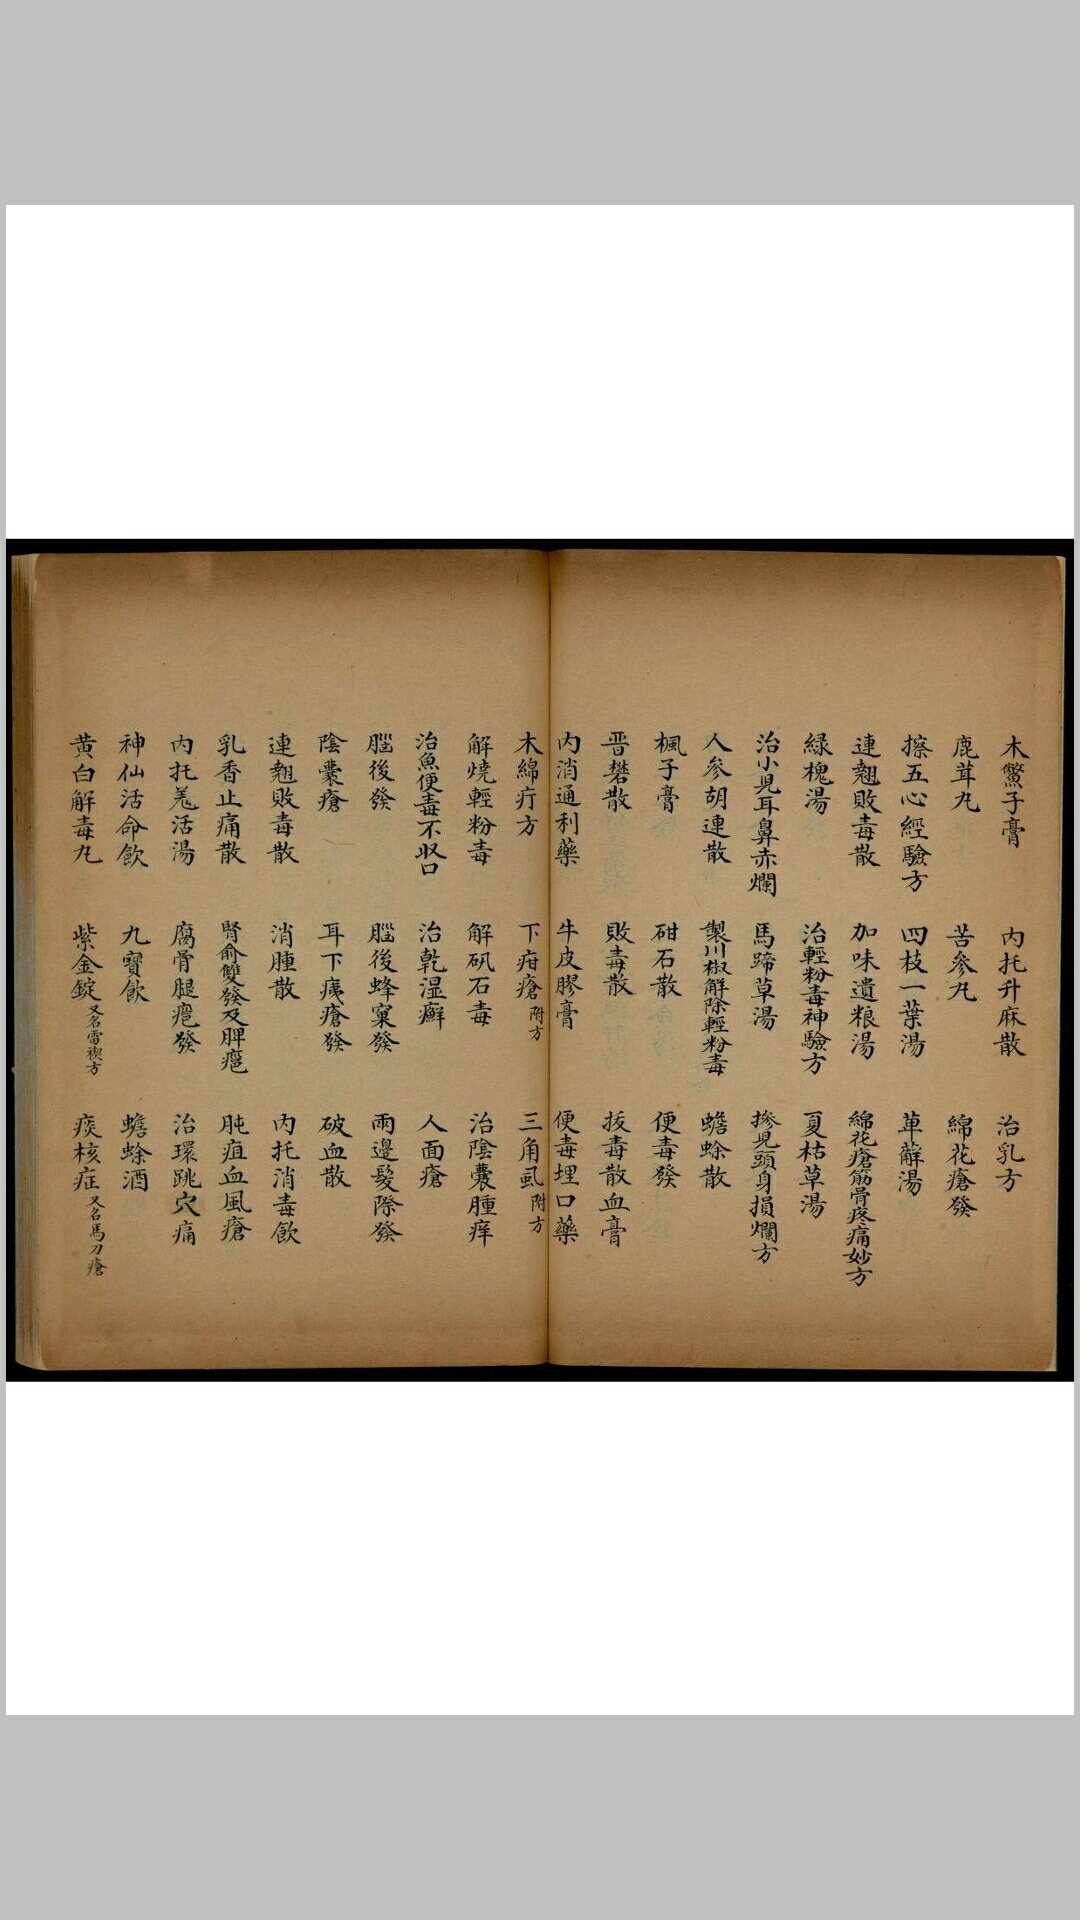 木鱉子膏 內托升麻散 治乳方
鹿茸丸 苦參丸 綿花瘡發
擦五心經驗方 四枝一葉湯 萆薢湯
連翹敗毒散 加味遺粮湯 綿花瘡筋骨疼痛妙方
綠槐湯 治輕粉毒神驗方 夏枯草湯
治小児耳鼻赤爛 馬蹄草湯 摻児頭身損爛方
人參胡連散 製川椒解除輕粉毒 蟾蜍散
楓子膏 砒石散 便毒發
晋礬散 敗毒散 拔毒散血膏
內消通利藥 牛皮膠膏 便毒埋口藥
木綿疔方 下疳瘡附方 三角虱附方
解燒輕粉毒 解矾石毒 治陰囊腫痒
治魚便毒不収口 治乾湿癬 人面瘡
腦後發 腦後蜂窠發 兩邊髮際發
陰囊瘡 耳下痍瘡發 破血散
連翹敗毒散 消腫散 內托消毒飲
乳香止痛散 腎俞雙發及脾瘟 肫疽血風瘡
內托羗活湯 腐骨腿瘟發 治環跳穴痛
神仙活命飲 九寶飲 蟾蜍酒
黃白解毒丸 紫金錠又名雷楔方 痰核症又名馬刀瘡